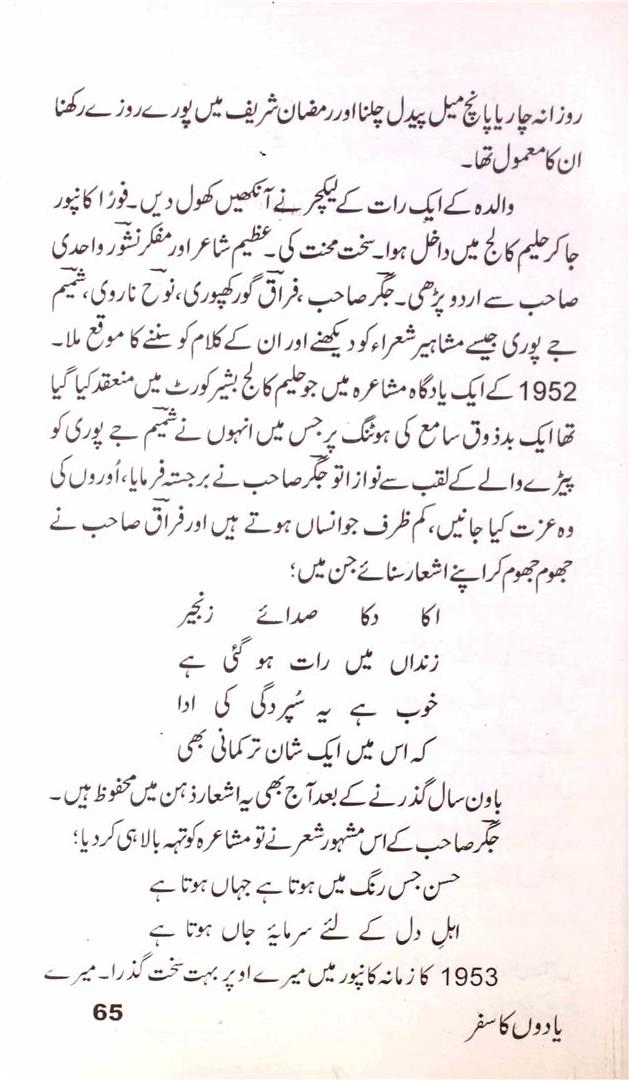 روزانہ چار یا پانچ میل پیدل چلنا اور رمضان شریف میں پورے روزے رکھنا
ان کا معمول تھا۔
والدہ کے ایک رات کے لیکچر نے آنکھیں کھول دیں۔ فوراً کانپور
جا کر حلیم کالج میں داخل ہوا۔ سخت محنت کی۔ عظیم شاعر اور مفکر نشورؔ واحدی
صاحب سے اردو پڑھی۔ جگرؔ صاحب ، فراقؔ گورکھپوری، نوحؔ ناروی، شمیمؔ
جے پوری جیسے مشاہیر شعراء کو دیکھنے اور ان کے کلام کو سننے کا موقع ملا۔
1952 کے ایک یادگاہ مشاعرہ میں جو حلیم کالج بشیر کورٹ میں منعقد کیا گیا
تھا ایک بدذوق سامع کی ہوٹنگ پر جس میں انہوں نے شمیمؔ جے پوری کو
پیڑے والے کے لقب سے نوازا تو جگرؔ صاحب نے برجستہ فرمایا، اُوروں کی
وہ عزت کیا جانیں، کم ظرف جو انساں ہوتے ہیں اور فراقؔ صاحب نے
جھوم جھوم کر اپنے اشعار سنائے جن میں؛
اکا دکا صدائے زنجیر
زنداں میں رات ہو گئی ہے
خوب ہے یہ سُپردگی کی ادا
کہ اس میں ایک شان ترکمانی بھی
باون سال گذرنے کے بعد آج بھی یہ اشعار ذہن میں محفوظ ہیں۔
جگرؔ صاحب کے اس مشہور شعر نے تو مشاعرہ کو تہہ بالا ہی کر دیا؛
حسن جس رنگ میں ہوتا ہے جہاں ہوتا ہے
اہلِ دل کے لئے سرمایۂ جاں ہوتا ہے
1953 کا زمانہ کانپور میں میرے اوپر بہت سخت گذرا۔ میرے
یادوں کا سفر 65